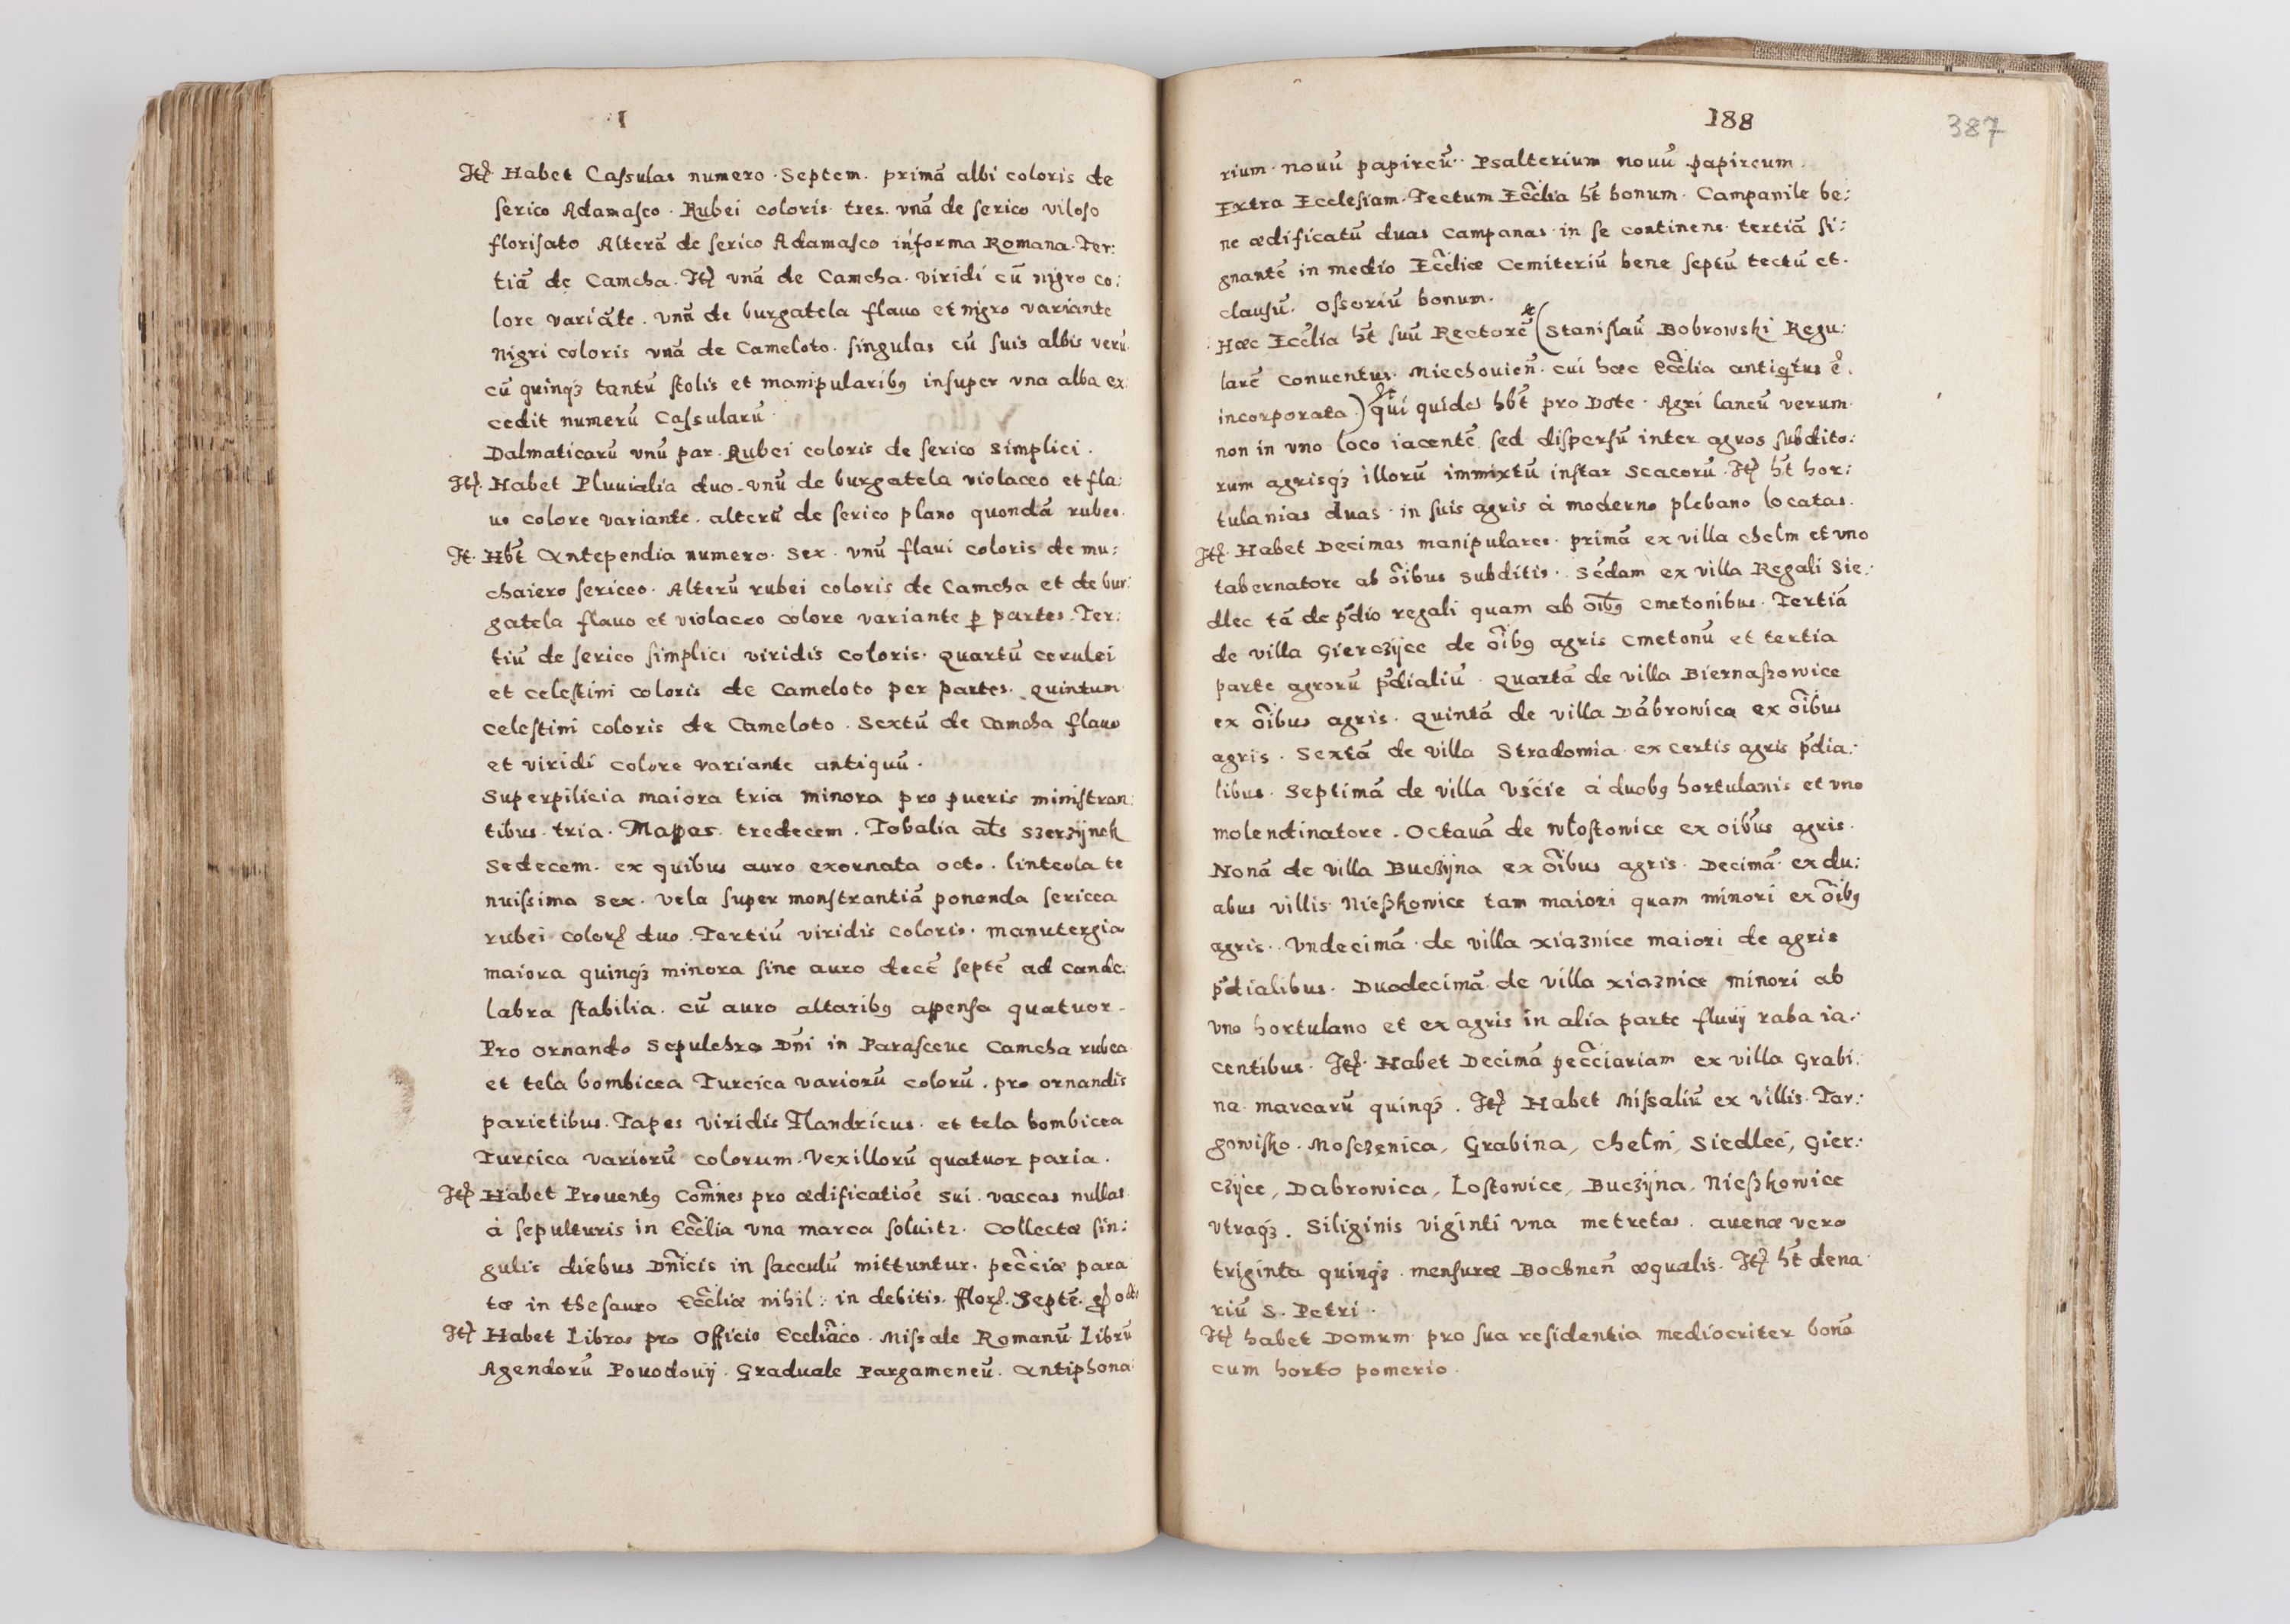 I
Itꝫ Habet Caſsulas numero · Septem · primã albi coloris de
ſerico Adamaſco · Rubei coloris tres · vnã de ſerico viloſo
floriſato Alterã de ſerico Adamaſco in forma Romana · Ter:
tiã de Camcha · Itꝫ vnã de Camcha · viridi cũ nigro co:
lore variãte · vnã de burgatela flauo et nigro variante
Nigri coloris vnã de Cameloto · ſingulas cũ ſuis albis verũ
cũ quinqꝫ tantũ ſtolis et manipularibꝰ inſuper vna alba ex:
cedit numerũ Caſsularũ ·
Dalmaticarũ vnũ par · Rubei coloris de ſerico Simplici ·
Itꝫ · Habet Pluuialia duo · vnũ de burgatela violaceo et fla:
uo colore variante · alterũ de ſerico plano quondã rubeo ·
It · Hbt̃ Antependia numero · Sex · vnũ flaui coloris de mu:
chaiero ſericeo · Alterũ rubei coloris de Camcha et de bur:
gatela flauo et violaceo colore variante ꝑ partes · Ter:
tiũ de ſerico ſimplici viridis coloris · Quartũ cerulei
et celeſtini coloris de Cameloto per partes · Quintum
celeſtini coloris de Cameloto · Sextũ de Camcha flauo
et viridi colore variante antiquũ ·
Superpilicia maiora tria minora pro pueris miniſtran:
tibus · tria · Mappas · tredecem · Tobalia als̃ Szerzÿnek
Sedecem · ex quibus auro exornata octo · linteola te
nuiſsima Sex · Vela ſuper monſtrantiã ponenda ſericea
rubei colorꝫ duo · Tertiũ viridis coloris · manutergia
maiora quinqꝫ minora ſine auro decẽ ſeptẽ ad cande:
labra ſtabilia · cũ auro altaribꝰ appenſa quatuor ·
Pro ornando Sepulchro Dñi in Paraſceue Camcha rubea
et tela bombicea Turcica variorũ colorũ · pro ornandis
parietibus · Tapes viridis Flandricus · et tela bombicea
Turcica variorũ colorum · Vexillorũ quatuor paria ·
Itꝫ Habet Prouentꝰ Com̃nes pro ædificatiõe sui · vaccas nullas
à ſepulturis in Eccl̃ia vna marca ſoluitꝛ · Collectæ ſin:
gulis diebus Dñicis in ſacculũ mittuntur · pec̃ciæ para
tæ in theſauro Eccl̃iæ nihil : in debitis · fflorꝫ · Septẽ · octo
Itꝫ Habet Libros pro Officio Eccliãco · Miſsale Romanũ Librũ
Agendorũ Pouodouÿ · Graduale Pargameneũ · Antiphona:
188
387
rium · nouũ papireũ · Psalterium nouũ papireum ·
Extra Eccleſiam · Tectum Eccl̃ia ht̃ bonum · Campanile be:
ne ædificatũ duas campanas · in ſe continens · tertiã ſi:
gnantẽ in medio Eccl̃iæ Cemiteriũ bene ſeptũ tectũ et ·
clauſũ · Oſsoriũ bonum ·
Hæc Eccl̃ia ht̃ ſuũ Rectorẽ (Staniſlaũ Bobrowski Regu:
larẽ Conuentus · Miechouien̄ · cui hæc Eccl̃ia antiqtus ẽ ·
incorporata ·) qui quidẽ hbt̃ pro Dote · Agri laneũ verum
non in vno loco iacentẽ ſed diſperſũ inter agros ſubdito:
rum agrisqꝫ illorũ immixtũ inſtar Scacorũ · Itꝫ ht̃ hor:
tulanias duas · in ſuis agris à moderno plebano locatas ·
Itꝫ · Habet Decimas manipulares · primã ex villa chelm et vno
tabernatore ab õibus Subditis · Sẽdam ex villa Regali Sie:
dlec tã de p̃dio regali quam ab õibꝰ cmetonibus · Tertiã
de villa Gierczÿce de õibꝰ agris cmetonũ et tertia
parte agrorũ p̃dialiũ · Quartã de villa Biernaſzowice
ex õibus agris · Quintã de villa Dabrowica ex õibus
agris · Sextã de villa Stradomia · ex certis agris p̃dia:
libus · Septimã de villa Vście à duobꝰ hortulanis et vno
molendinatore · Octauã de Włoſtowice ex oibũs agris ·
Nonã de villa Buczÿna ex õibus agris · Decimã · ex du:
abus villis Nieſzkowice tam maiori quam minori ex õibꝰ
agris · Vndecimã · de villa Xiaznice maiori de agris
p̃dialibus · Duodecimã · de villa Xiaznice minori ab
vno hortulano et ex agris in alia parte fluuÿ raba ia:
centibus · Itꝫ · Habet Decimã pec̃ciariam ex villa Grabi:
na · marcarũ quinqꝫ · Itꝫ Habet Miſsaliũ ex villis · Tar:
gowiſko · Moſczenica, Grabina, Chelm, Siedlec, Gier:
czÿce, Dabrowica, Loſtowice, Buczÿna, Nieſzkowice
vtraqꝫ · Siliginis viginti vna metretas · auenæ vero
triginta quinqꝫ · menſuræ Bochnen̄ æqualis · Itꝫ ht̃ dena
riũ S · Petri ·
Itꝫ habet Domum pro ſua reſidentia mediocriter bonã
cum horto pomerio ·